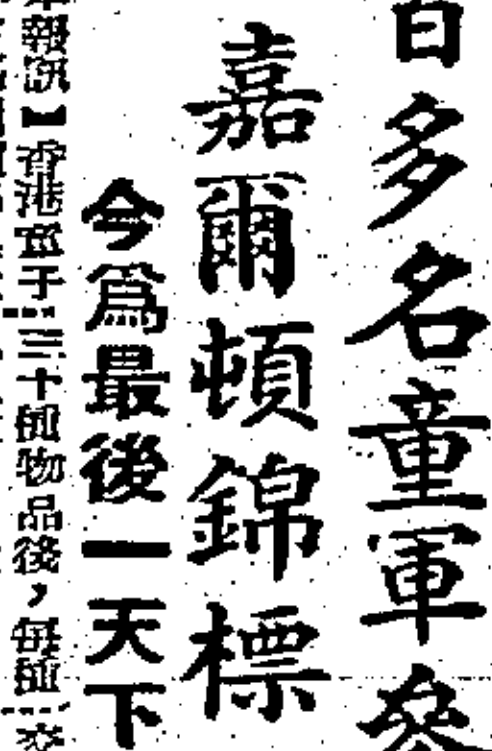 百多名童軍參
嘉爾頓錦標
今爲最後一天下
報訊】香港童子
三十種物品後，每種